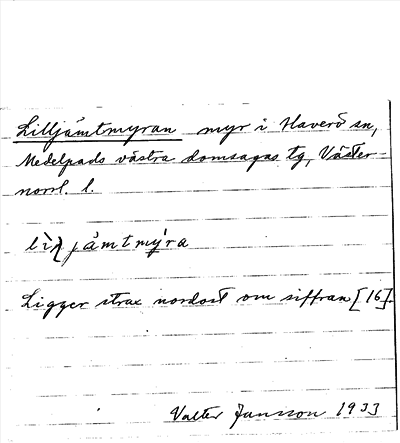 Lilljämtmyran myr i Haverö sn,
Medelpads västra domsagas tg, Väster-
norrl. l.
jämtmýra
Ligger strax nordost om siffran [16].
Valter Jansson 1933